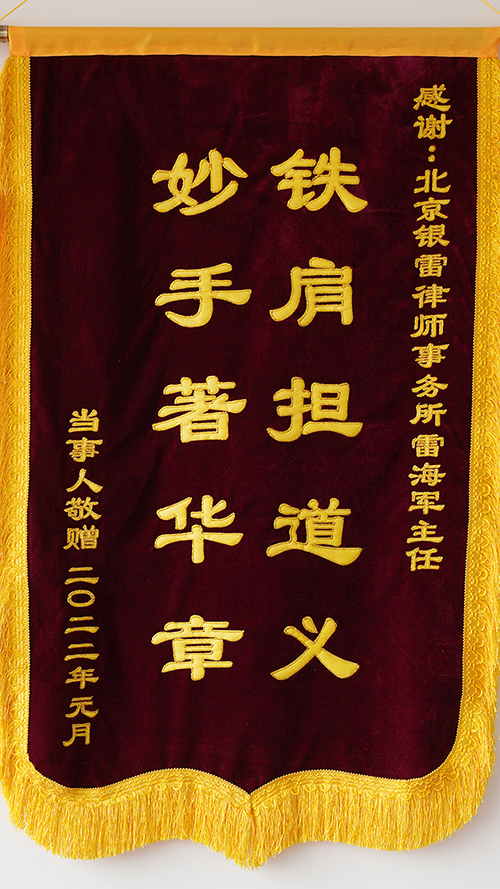 感谢：北京银雷律师事务所雷海军主任
铁肩担道义
妙手著华章
当事人敬赠 二〇二二年元月